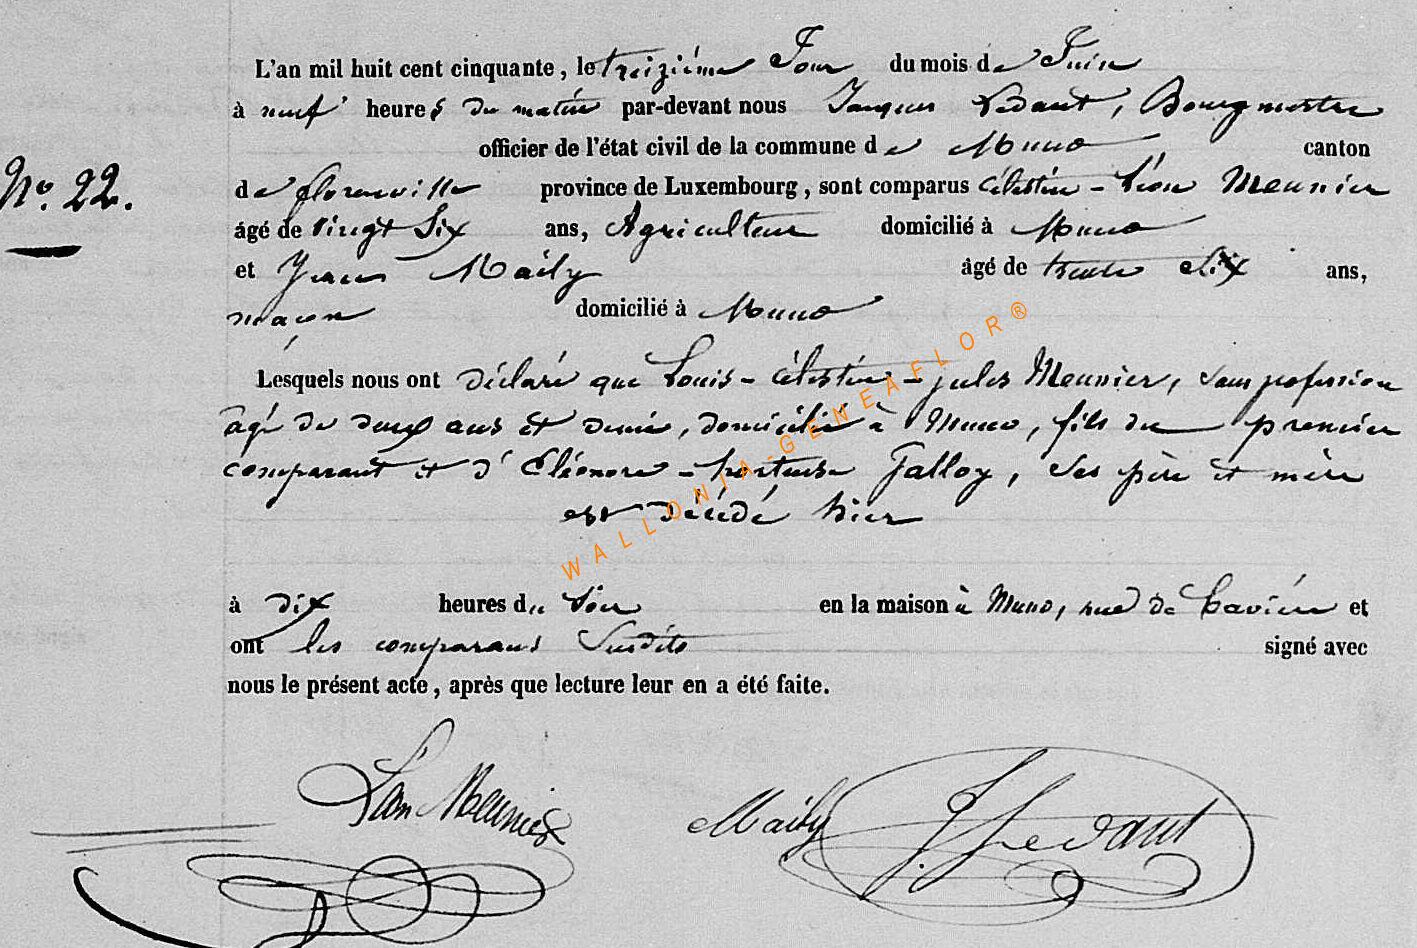 L'an mil huit cent cinquante, le treizième Jour du mois de Juin
à neuf heures du matin par-devant nous Jacques Ledant, Bourgmestre
officier de l'état civil de la commune de Muno canton
N° 22.
de florenville province de Luxembourg, sont comparus Célestin-Léon Meunier
âgé de vingt Six ans, Agriculteur domicilié à Muno
et Jean Maily âgé de trente Six ans,
maçon domicilié à Muno
Lesquels nous ont déclaré que Louis-Célestin-Jules Meunier, sans profession
âgé de deux ans et demi, domicilié à Muno, fils du premier
comparant et d'Eléonore-hortense Galloy, Ses père et mère
est décédé hier
à dix heures du Soir en la maison à Muno, rue de et
ont les comparans Susdits signé avec
nous le présent acte, après que lecture leur en a été faite.
Léon Meunier Maily J. Ledant
WALLONIA-GENEAFLOR®